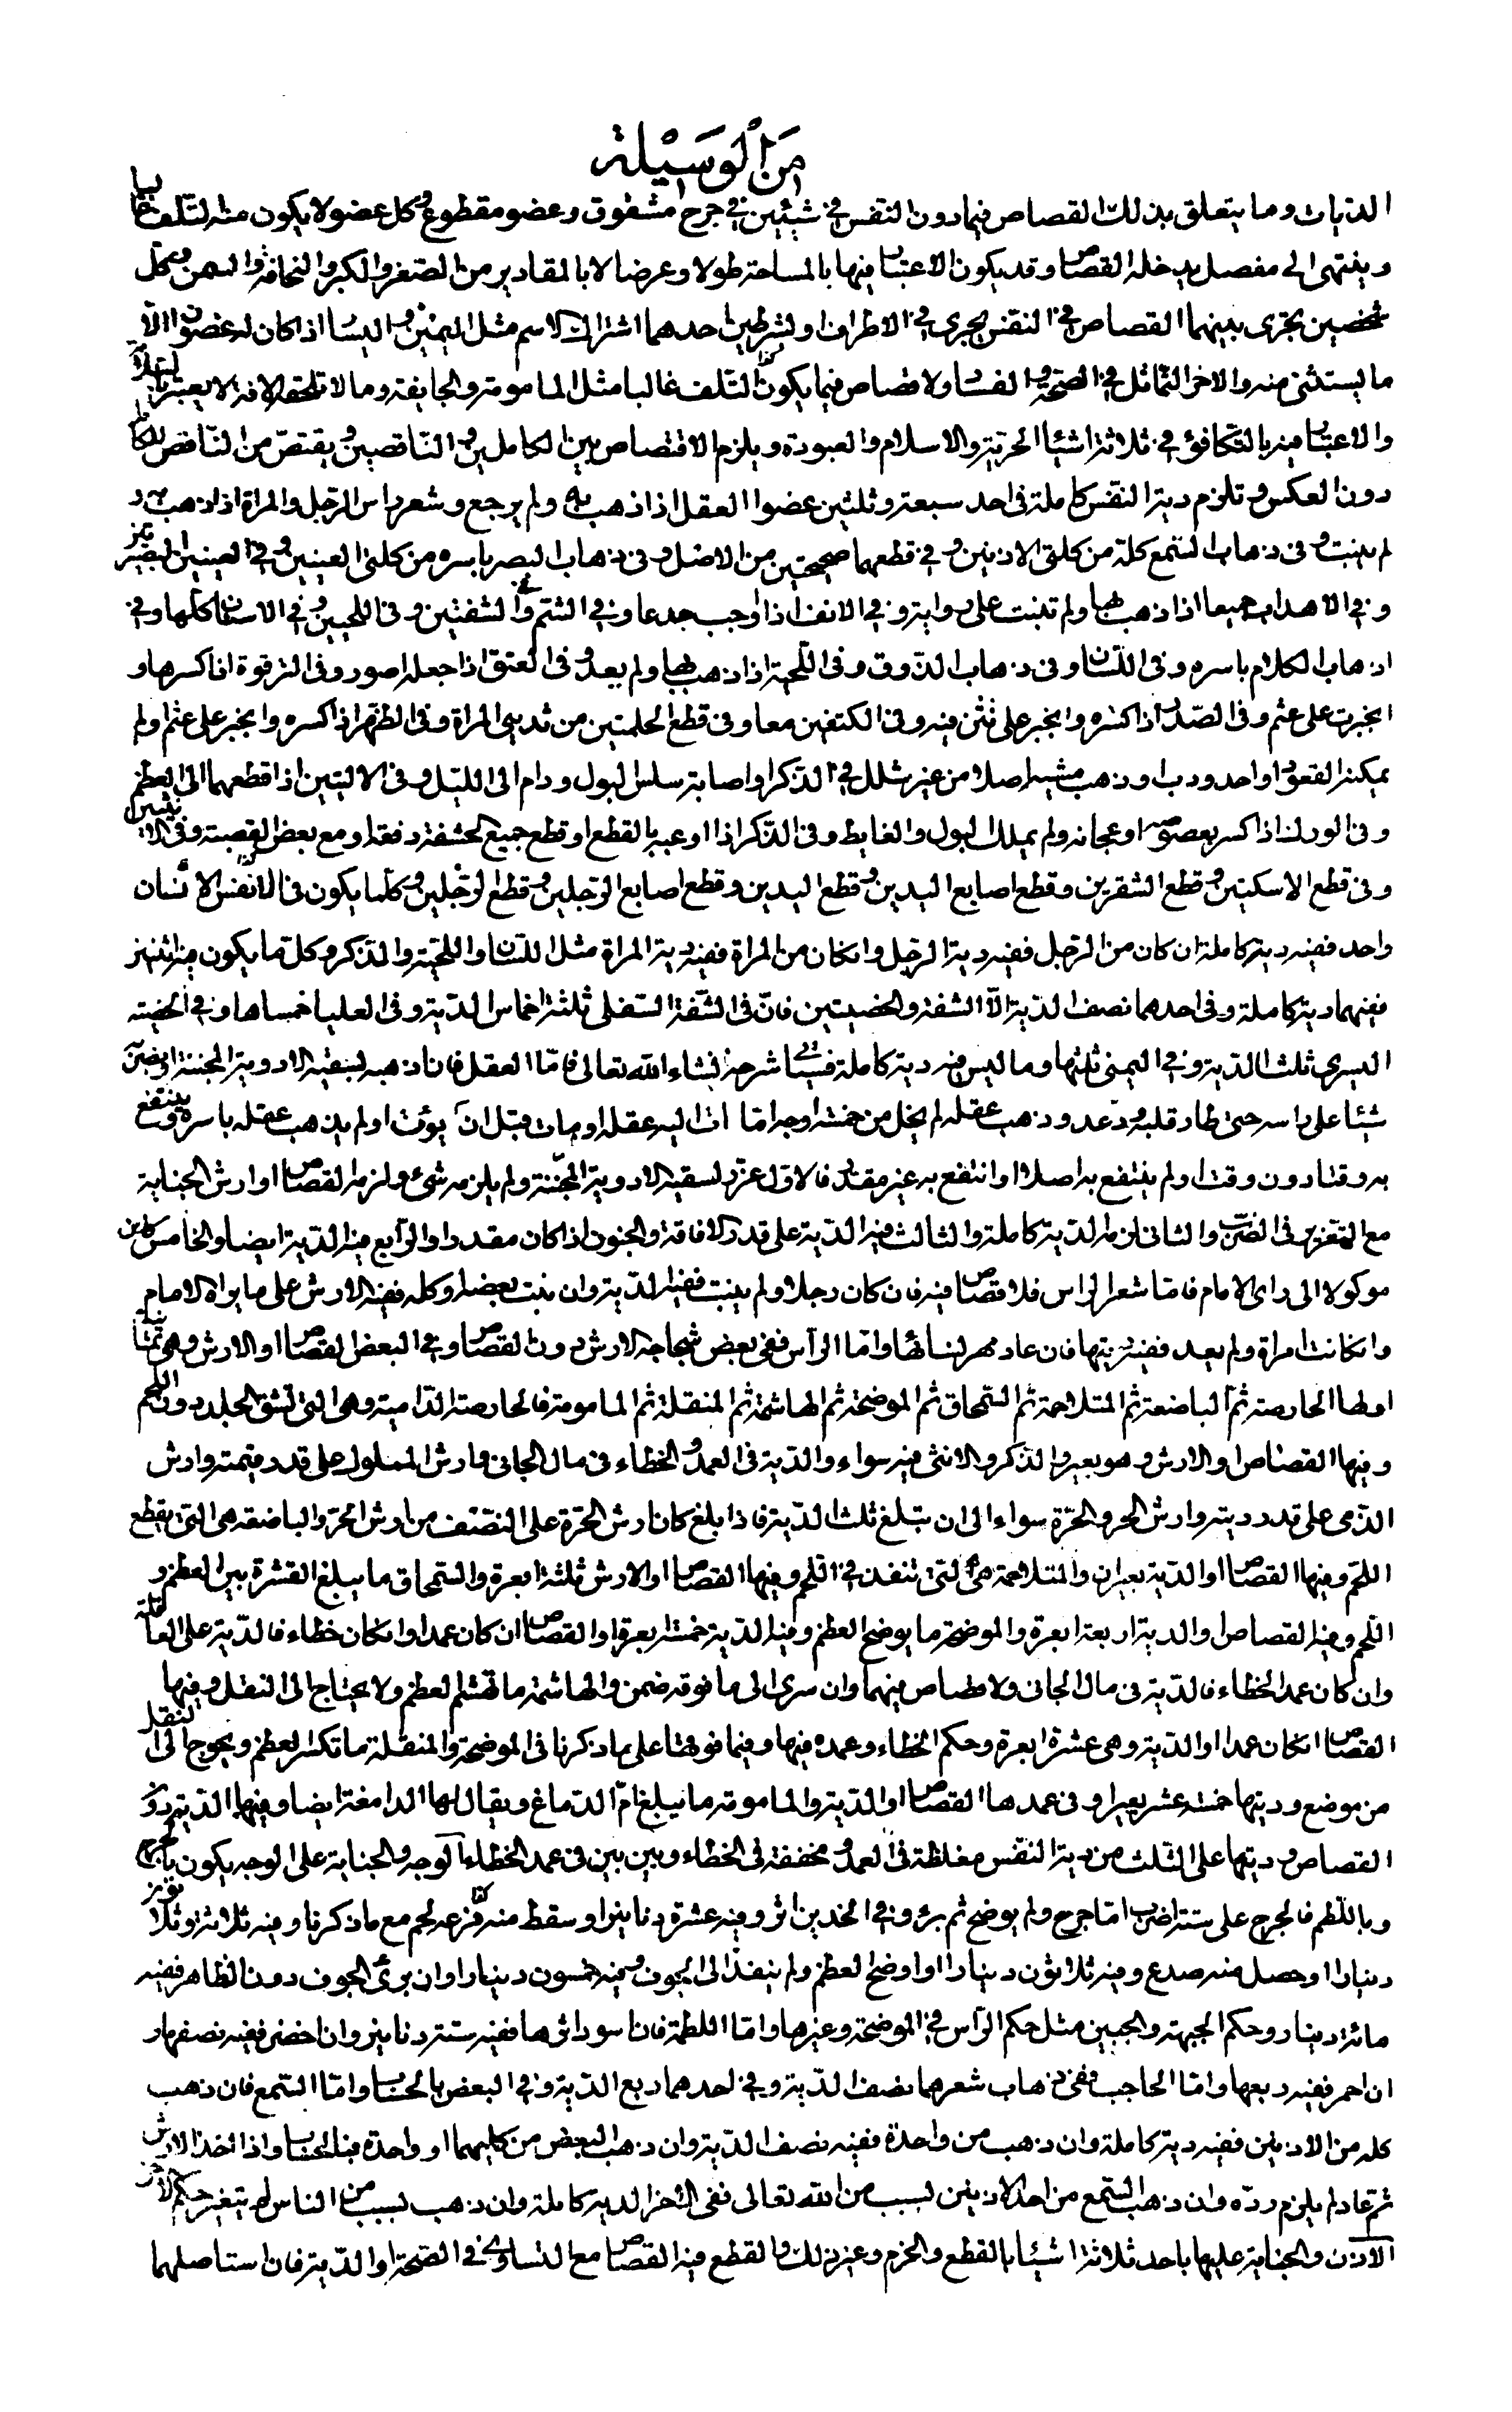 من الوسيلة
الديات وما يتعلق بذلك القصاص فيما دون النفس في شيئين في جرح مشقوق وعضو مقطوع وكل عضو لا يكون منه التلف غالبا
وينتهى الى مفصل يدخله القصاص وقد يكون الاعتبار فيها بالمساحة طولا وعرضا لا بالمقادير من الصغر والكبر والنحافة والسمن وكل
شخصين يجرى بينهما القصاص في النفس يجرى في الاطراف ولشرطين احدهما اشتراك الاسم مثل اليمين واليسار اذا كان له عضوان الا
ما يستثنى منه والاخر التماثل في الصحة والفساد ولا قصاص فيما يكون التلف غالبا مثل المامومة والجايفة وما لا تلحقه الافة لا يعتبر
والاعتبار فيه بالتكافؤ في ثلاثة اشياء الحرية والاسلام والعبودة ويلزم الاقتصاص بين الكاملين والناقصين ويقتص من الناقص للكامل
دون العكس وتلزم دية النفس كاملة في احد سبعة وثلثين عضوا العقل اذا ذهب به ولم يرجع وشعر راس الرجل والمراة اذا ذهب به و
لم ينبت وفى ذهاب السمع كله من كلتى الاذنين وفي قطعهما صحيحتين من الاصل وفى ذهاب البصر باسره من كلتى العينين وفي العينين البصيرتين
وفي الاهداب جميعا اذا ذهب بها ولم تنبت على رواية وفي الانف اذا اوجب جدعا وفي الشم والشفتين وفى اللحيين وفي الاسنان كلها وفي
اذهاب الكلام باسره وفى اللسان وفى ذهاب الذوق وفى اللحية اذا ذهب بها ولم يعد وفى العنق اذا جعله اصور وفى الترقوة اذا كسرها و
انجبرت على عثم وفى الصدر اذا كسره وانجبر على ثنى فيه وفى الكتفين معا وفى قطع الحلمتين من ثديي المراة وفى الظهر اذا كسره وانجبر على عثم اولم
يمكنه القعود او احدودب او ذهب مشيه اصلا من غير شلل في الذكر او اصابه سلس البول ودام الى الليل وفى الاليتين اذا قطعهما الى العظم
وفى الورك اذا كسر بعصوصه او عجانه ولم يملك البول والغايط وفى الذكر اذا اوعبه بالقطع او قطع جميع الحشفة دفعة او مع بعض القصبة وفى الانثيين
وفى قطع الاسكتين وقطع الشفرين وقطع اصابع اليدين وقطع اليدين وقطع اصابع الرجلين وقطع الرجلين وكلما يكون في الانفس الانسان
واحد ففيه دية كاملة ان كان من الرجل ففيه دية الرجل وانكان من المراة ففيه دية المراة مثل اللسان واللحية والذكر وكل ما يكون منه اثنين
ففيهما دية كاملة وفى احدهما نصف الدية الا الشفة والخصيتين فان فى الشفة السفلى ثلثة اخماس الدية وفى العليا خمساها وفي الخصية
اليسرى ثلث الدية وفي اليمنى ثلثها وما ليس فيه دية كاملة فسياتى شرحه انشاء الله تعالى فاما العقل فان اذهبه بسقيه الادوية المجننة او ضرب
شيئا على راسه حتى طار قلبه وعد وذهب عقله لم يخل من خمسة اوجه اما اتى اليه عقله او مات قبل ان يوئت او لم يذهب عقله باسره وينتفع
به وقتا دون وقت او لم ينتفع به اصلا او انتفع به غير مقدر فالاول عزر لسقيه الادوية المجننة ولم يلزمه شئ ولزمه القصاص او ارش الجناية
مع التعزير فى الضرب والثانى لزمه الدية كاملة والثالث فيه الدية على قدر الافاقة والجنون اذا كان مقدرا والرابع فيه الدية ايضا والخامس كان
موكولا الى راى الامام فاما شعر الراس فلا قصاص فيه فان كان رجلا ولم ينبت ففيه الدية وان نبت بعضه او كله ففيه الارش على ما يراه الامام
وانكانت امراة ولم يعد ففيه ديتها فان عاد مهر نسائها واما الرأس ففى بعض شجاجه الارش دون القصاص وفي البعض القصاص او الارش وهى ثمانية
اولها الحارصة ثم الباضعة ثم المتلاحمة ثم السمحاق ثم الموضحة ثم الهاشمة ثم المنقلة ثم المامومة فالحارصة الدامية وهى التى تشق الجلد دون اللحم
وفيها القصاص او الارش وهو بعير والذكر والانثى فيه سواء والدية فى العمد والخطاء فى مال الجانى وارش المملوك على قدر قيمته وارش
الذمى على قدر ديته وارش الحر والحرة سواء الى ان تبلغ ثلث الدية فاذا بلغ كان ارش الحرة على النصف من ارش الحر والباضعة هى التى يقطع
اللحم وفيها القصاص او الدية بعيران والمتلاحمة هى التى تنفذ في اللحم وفيها القصاص او الارش ثلثة ابعرة والسمحاق ما يبلغ القشرة بين العظم و
اللحم وفيه القصاص او الدية اربعة ابعرة والموضحة ما يوضح العظم وفيه الدية خمسة ابعرة او القصاص ان كان عمدا وانكان خطاء فالدية على العاقلة
وان كان عمد الخطاء فالدية فى مال الجانى ولا قصاص فيهما وان سرى الى ما فوقه ضمن والهاشمة ما تهشم العظم ولا يحتاج الى النقل وفيها
القصاص انكان عمدا او الدية وهى عشرة ابعرة وحكم الخطاء وعمده فيها وفيما فوقها على ما ذكرنا فى الموضحة والمنقلة ما تكسر العظم ويحوج الى النقل
من موضع وديتها خمسة عشر بعيرا وفى عمدها القصاص او الدية والمامومة ما يبلغ ام الدماغ ويقال لها الدامغة ايضا وفيها الدية دون
القصاص وديتها على الثلث من دية النفس مغلظة فى العمد ومخففة فى الخطاء وبين بين فى عمد الخطاء الوجه والجناية على الوجه يكون بالجرح
وباللطم فالجرح على ستة اضرب اما جرح ولم يوضح ثم برؤ وفي الخدين اثر وفيه عشرة دنانير او سقط منه قزعة لحم مع ما ذكرنا وفيه ثلاثة وثلاثون
دينارا او حصل منه صدع وفيه ثلاثون دينارا او اوضح العظم ولم ينفذ الى الجوف وفيه خمسون دينارا وان برئ الجوف دون الظاهر ففيه
مائة دينار وحكم الجبهة والجبين مثل حكم الرأس في الموضحة وغيرها واما اللطمة فان اسود اثرها ففيه ستة دنانير وان اخضر ففيه نصفها و
ان احمر ففيه ربعها واما الحاجب ففي ذهاب شعرهما نصف الدية وفي احدهما ربع الدية وفي البعض بالحساب واما السمع فان ذهب
كله من الاذنين ففيه دية كاملة وان ذهب من واحدة ففيه نصف الدية وان ذهب البعض من كليهما او واحدة فبالحساب واذا اخذ الارش
ثم عاد لم يلزم رده وان ذهب السمع من احد الاذنين لسبب من الله تعالى ففى الاخر الدية كاملة وان ذهب لسبب من الناس لم يتغير حكم الاخر
الاذن والجناية عليها باحد ثلاثة اشياء بالقطع والخرم وغير ذلك والقطع فيه القصاص مع التساوى في الصحة او الدية فان استاصلهما